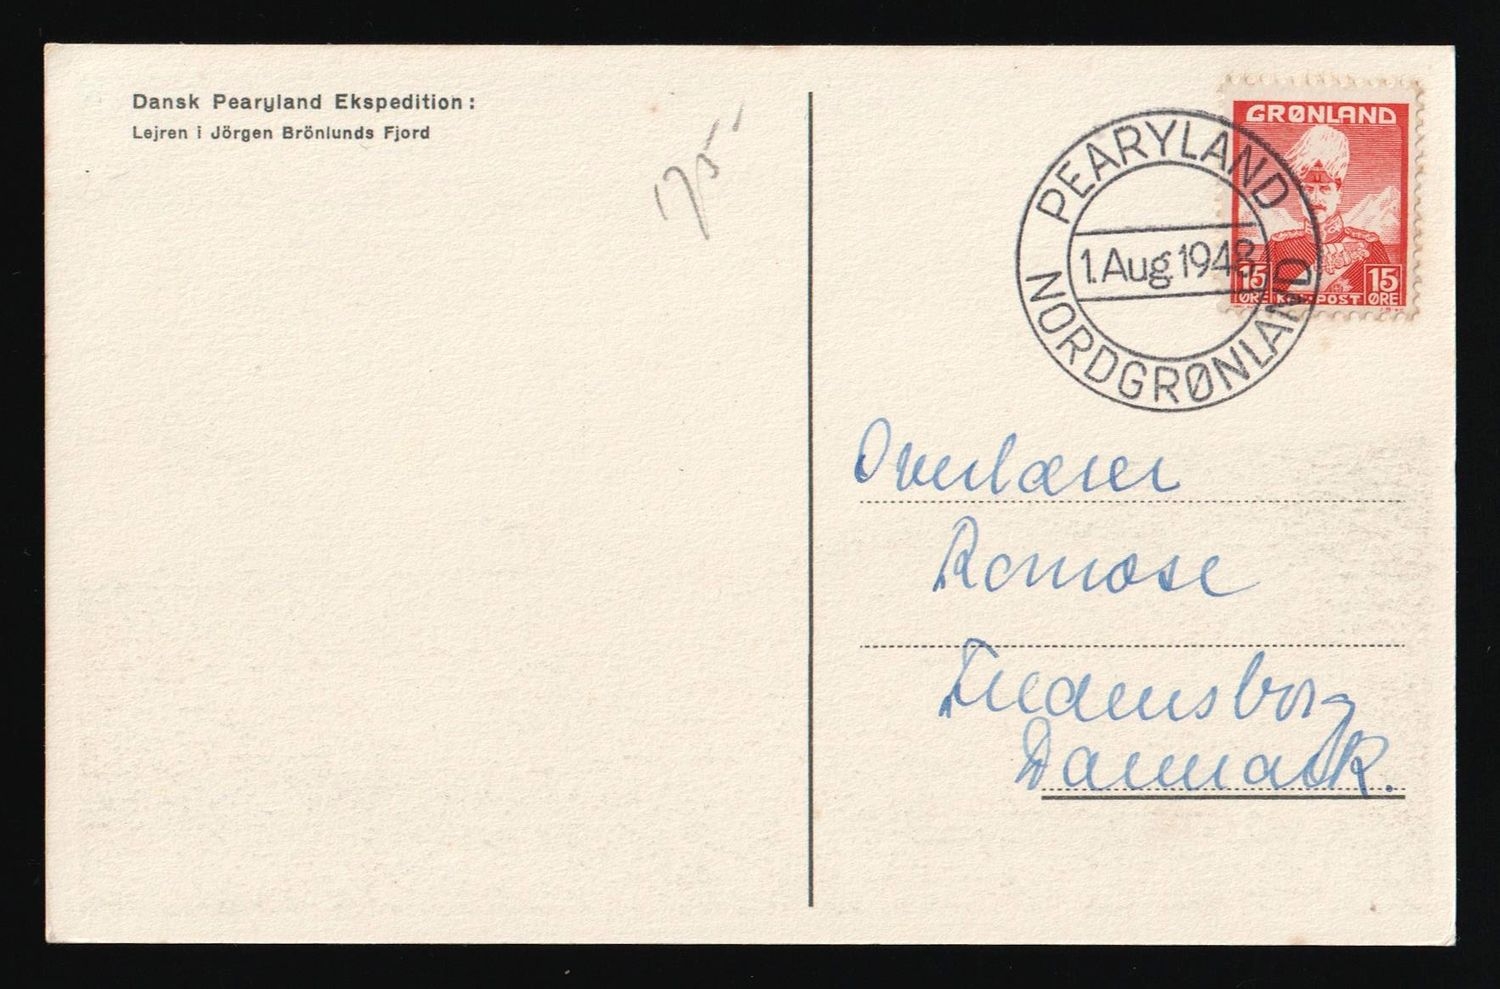 Dansk Pearyland Ekspedition:
Lejren i Jörgen Brönlunds Fjord
175
PEARYLAND
1. Aug 1948
NORDGRØNLAND
GRØNLAND
15 15
ØRE KGL. POST ØRE
Overlærer
Ramose
Fredensborg
Danmark.